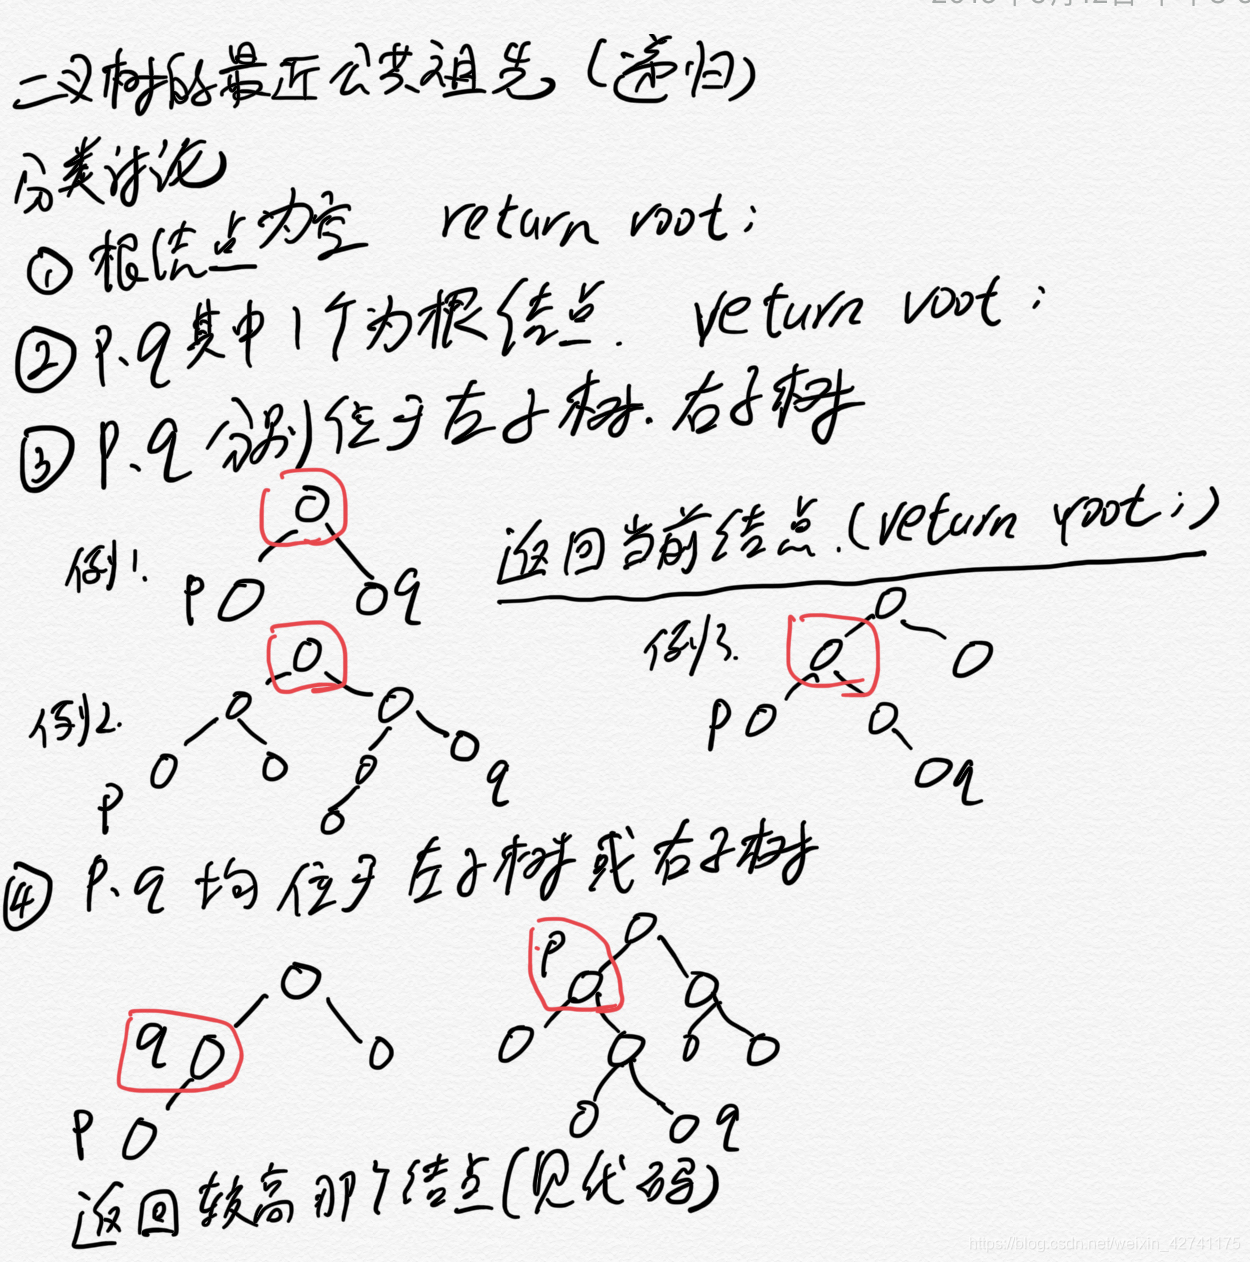 二叉树的最近公共祖先（递归）
分类讨论
① 根结点为空 return root;
② p、q其中1个为根结点. return root;
③ p、q分别位于左子树.右子树
例1.
p q
返回当前结点.(return root;)
例2.
p q
例3.
p
q
④ p、q均位于左子树或右子树
q
p
p
q
返回较高那个结点(见代码)
https://blog.csdn.net/weixin_42741175